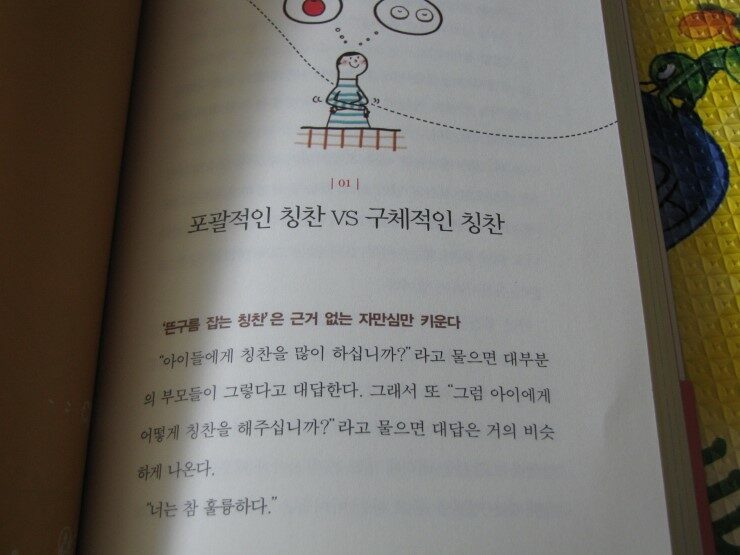 | 01 |
포괄적인 칭찬 VS 구체적인 칭찬
'뜬구름 잡는 칭찬'은 근거 없는 자만심만 키운다
"아이들에게 칭찬을 많이 하십니까?"라고 물으면 대부분
의 부모들이 그렇다고 대답한다. 그래서 또 "그럼 아이에게
어떻게 칭찬을 해주십니까?"라고 물으면 대답은 거의 비슷
하게 나온다.
"너는 참 훌륭하다."